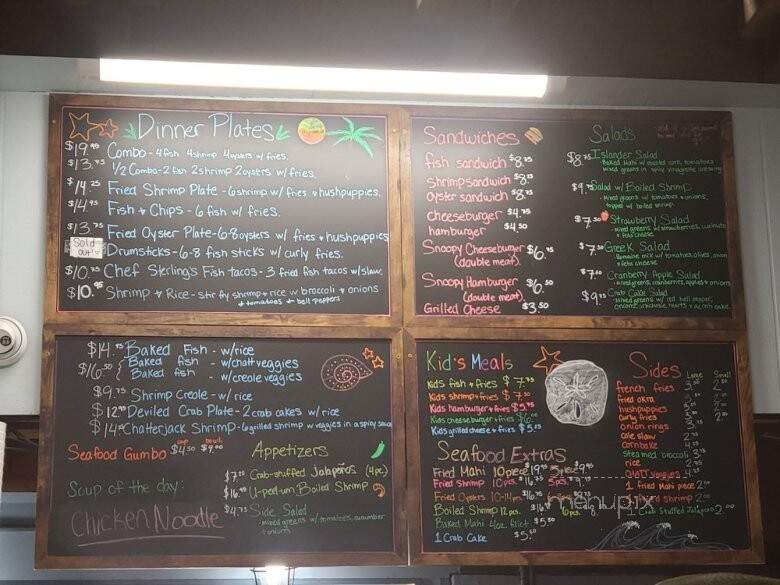 Dinner Plates
$19.95 Combo - 4 fish 4 shrimp 4 oysters w/ fries.
$13.75 1/2 Combo - 2 fish 2 shrimp 2 oysters w/ fries.
$14.25 Fried Shrimp Plate - 6 shrimp w/ fries + hushpuppies.
$14.95 Fish + Chips - 6 fish w/ fries.
$13.75 Fried Oyster Plate - 6-8 oysters w/ fries + hushpuppies
Sold out! Drumsticks - 6-8 fish sticks w/ curly fries.
$10.75 Chef Sterling's Fish tacos - 3 fried fish tacos w/ slaw.
$10.95 Shrimp + Rice - stir fry shrimp + rice w/ broccoli + onions
+ tomatoes + bell peppers
Sandwiches
fish sandwich $8.25
shrimp sandwich $8.25
oyster sandwich $8.75
cheeseburger $4.75
hamburger $4.50
Snoopy Cheeseburger $6.75
(double meat)
Snoopy Hamburger $6.50
(double meat)
Grilled Cheese $3.50
Salads
Islander Salad
- Baked Mahi w/ roasted corn, tomatoes
mixed greens in spicy vinaigrette
Salad w/ Boiled Shrimp
- Mixed greens w/ tomatoes + onions,
topped w/ boiled shrimp
$7.50 Strawberry Salad
- Mixed greens w/ strawberries, walnuts
+ feta cheese
Greek Salad
- Romaine mix w/ tomatoes, olives, onion
+ feta cheese
Cranberry Apple Salad
- mixed greens, cranberries, apples + onions
Crab Cake Salad
- Mixed greens w/ red bell pepper,
onions, artichoke hearts + a crab cake
$14.75 Baked Fish - w/ rice
$16.50 { Baked fish - w/ chatt veggies
Baked fish - w/ creole veggies
$9.75 Shrimp Creole - w/ rice
Deviled Crab Plate - 2 crab cakes w/ rice
Chatterjack Shrimp - 6 grilled shrimp w/ veggies in a spicy sauce
cup bowl
Seafood Gumbo $4.50 $9.00
Soup of the day:
Chicken Noodle
Appetizers
Crab-stuffed Jalapeños (4pc.)
U-peel-um Boiled Shrimp
$4.75 Side Salad
- mixed greens w/ tomatoes, cucumber
+ onions
Kid's Meals
Kids fish + fries $7.75
Kids shrimp + fries $7.50
Kids hamburger + fries $5.75
Kids cheeseburger + fries $6.00
Kids grilled cheese + fries $5.25
Sides
Large Small
french fries
fried okra
hushpuppies
curly fries
onion rings
cole slaw
cornbake
steamed broccoli
rice
chatt veggies
1 fried Mahi piece 2.00
1 Crab Stuffed Jalapeno 2.00
Seafood Extras
Fried Mahi 10 piece 5 piece
Fried Shrimp 10 pcs. 5 pcs.
Fried Oysters 10-14 pcs.
Boiled Shrimp 12 pcs. 6 pcs.
Baked Mahi 4oz. fillet $5.50
1 Crab Cake $5.50
menupix